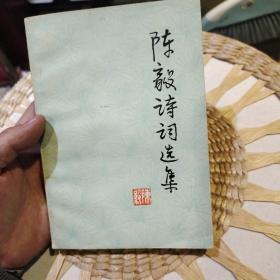 陈毅诗词选集